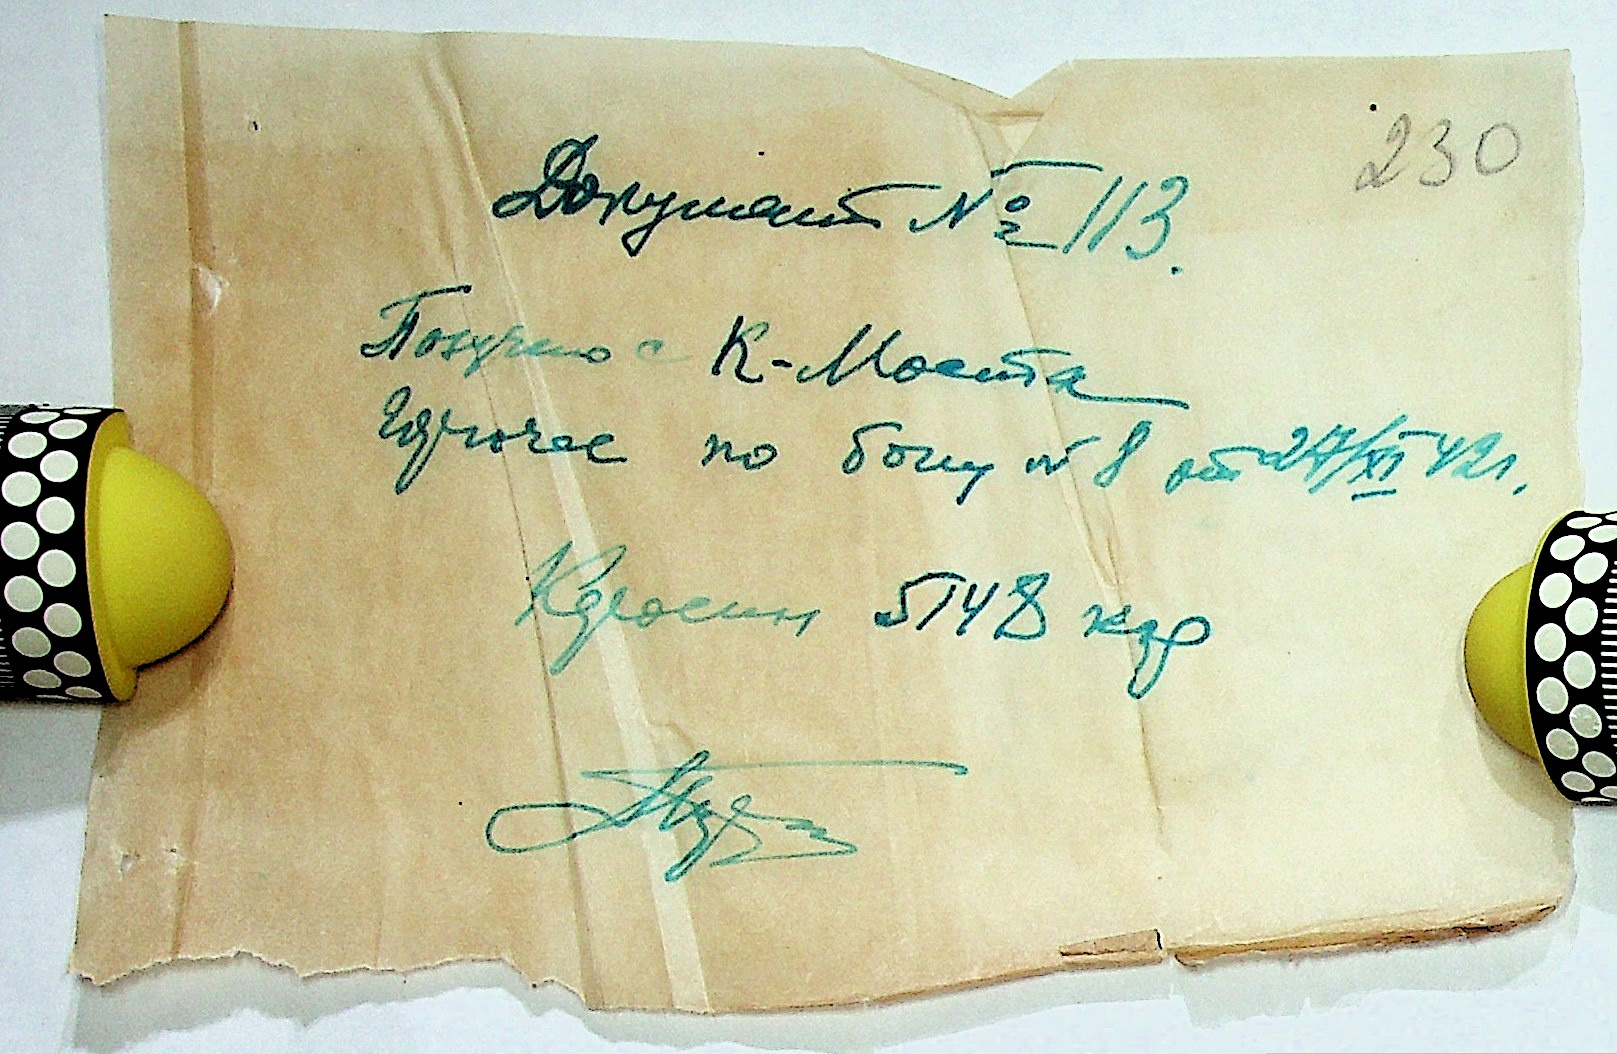 230
Документ № 113.
Получено с К-Моста
по бону № 8 от 27/XI 42г.
Керосин 5148 кгр